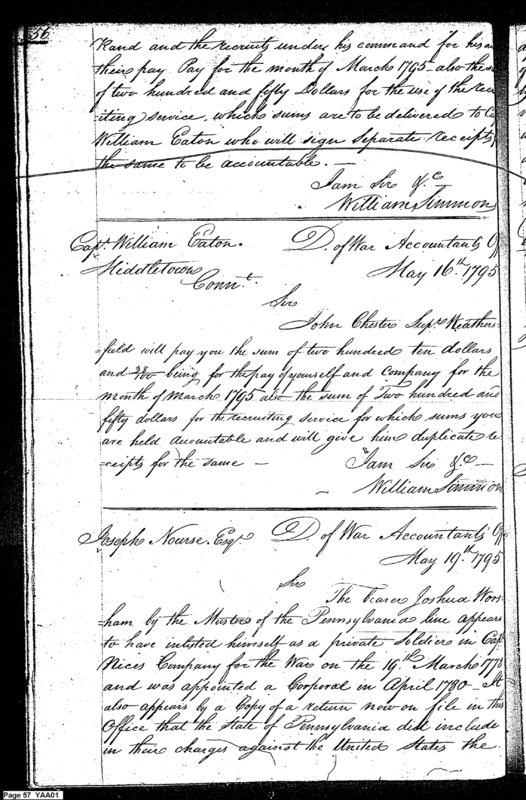 56
Rand and the recruits under his command for his an
their pay. Pay for the month of March 1795 also the s
of two hundred and fifty Dollars for the use of the recr
=iting service, which sums are to be delivered to C
William Eaton who will sign separate receipts
the same to be accountable. —
I am Sir &c
William Simmons
Capt. William Eaton. D. of War Accountants Off
Middletown May 16th 1795
Connt.
Sir
John Chester Supr. Weathers
=field will pay you the sum of two hundred ten dollars
and being for the pay of yourself and Company for the
month of March 1795 also the sum of Two hundred and
fifty dollars for the recruiting service for which sums you
are held accountable and will give him duplicate re
=ceipts for the same — I am Sir &c —
— William Simmon
Joseph Nourse. Esqr. D. of War Accountants Off
May 19th 1795
Sir
The bearer Joshua Wors
ham by the Musters of the Pennsylvania line appears
to have inlisted himself as a private Soldier in Capt
Nices Company for the War on the 19th March 1778
and was appointed a Corporal in April 1780 — It
also appears by a Copy of a return now on file in this
Office that the State of Pennsylvania did include
in their charges against the United States the
Page 57 YAA01